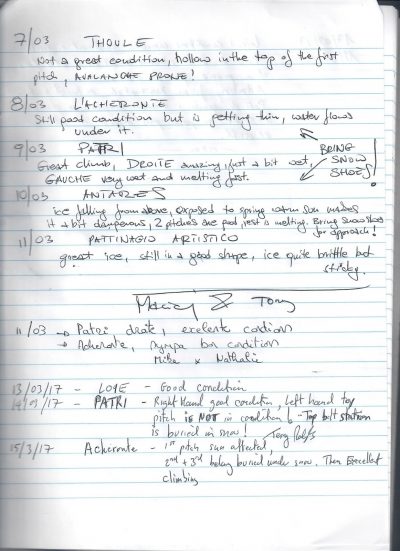 7/03 THOULE
Not a great condition, hollow in the top of the first
pitch, AVALANCHE PRONE!
8/03 L'ACHERONTE
Still good condition but is getting thin, water flows
under it.
9/03 PATRI
Great climb, DROITE amazing, just a bit wet,
GAUCHE very wet and melting fast.
BRING
SNOW
SHOES!
10/03 ANTARES
ice falling from above, exposed to spring warm sun makes
it a bit dangerous, 2 pitches are good, rest is melting. Bring snowshoes
for approach!
11/03 PATTINAGIO ARTISTICO
great ice, still in a good shape, ice quite brittle but
sticky.
Maciej & Tony
11/03 → Patri droite, condition
→ Acheronte, bon condition
Mike x Nathalie
13/03/17 - LOIE - Good condition
14/03/17 - PATRI - Right Hand good condition, Left hand top
pitch is NOT in condition! - Top bolt station
is buried in snow! Tony
15/3/17 Acheronte - 1st pitch sun affected,
2nd + 3rd belay buried under snow. Then Excellent
climbing